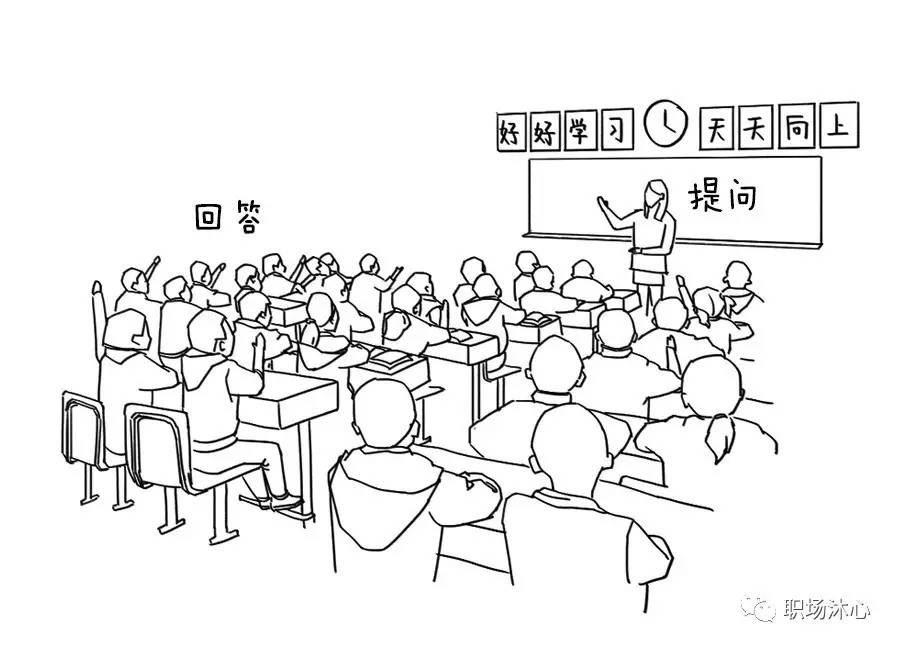 好好学习 天天向上
提问
回答
职场沐心